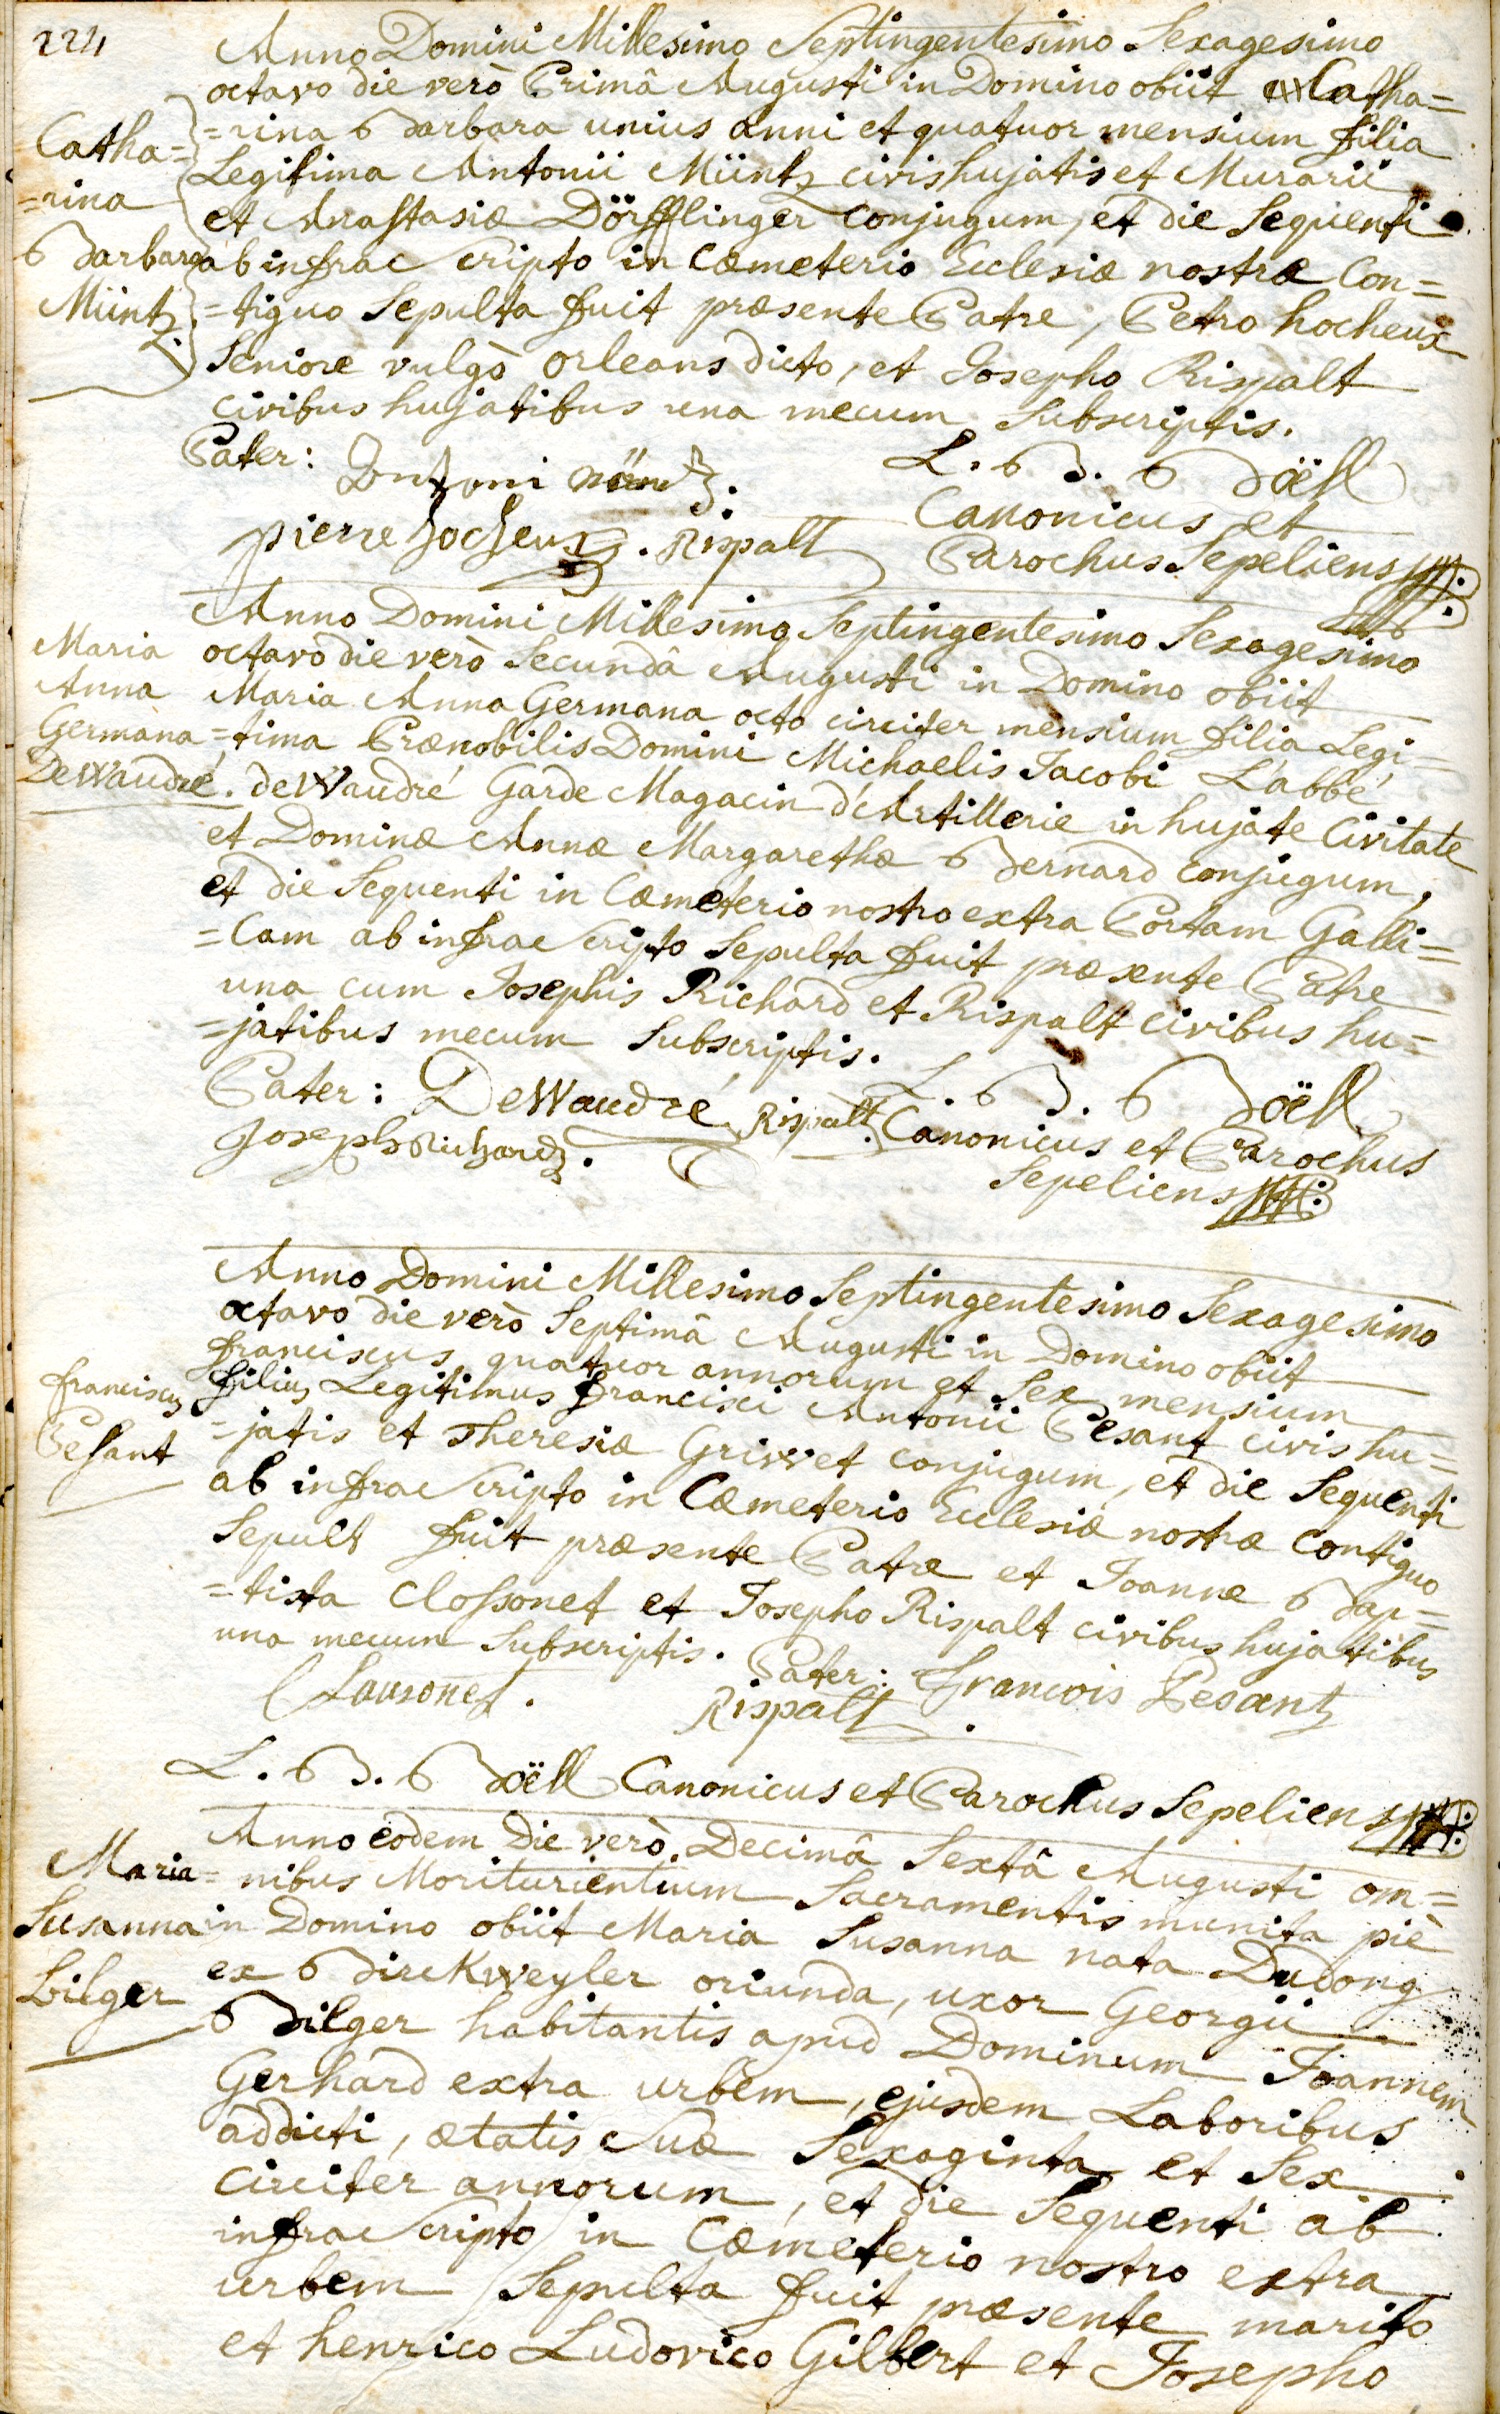 224
Anno Domini Millesimo Septingentesimo Sexagesimo
octavo die verò Primâ Augusti in Domino obiit Catha=
Catha=
=rina
Barbara
Müntz.
=rina Barbara unius anni et quatuor mensium filia
Legitima Antonii Müntz civis hujatis et Murarii
et Anastasiæ Dörfflinger conjugum, et die Sequenti
ab infrascripto in Cæmeterio Ecclesiæ nostræ Con=
=tiguo Sepulta fuit præsente Patre, Petro hocheux
Seniore vulgò orleans dicto, et Josepho Rispalt
civibus hujatibus una mecum Subscriptis.
Pater: Antoni müntz.
L. B. Boëll
Canonicus et
pierre hocheux. Rispalt
Parochus Sepeliens
Anno Domini Millesimo Septingentesimo Sexagesimo
Maria
Anna
Germana
DeWaudré.
octavo die verò Secundâ Augusti in Domino obiit
Maria Anna Germana octo circiter mensium filia Legi=
=tima Prænobilis Domini Michaelis Jacobi L'abbé
deWaudré Garde Magacin d'Artillerie in hujate Civitate
et Dominæ Annæ Margarethæ Bernard conjugum,
et die Sequenti in Cæmeterio nostro extra Portam Galli=
=Cam ab infrascripto Sepulta fuit præsente Patre
una cum Josephis Richard et Rispalt civibus hu=
=jatibus mecum Subscriptis.
Pater: DeWaudré Rispalt.
L. B. Boëll
Canonicus et Parochus
Joseph Richard.
Sepeliens
Anno Domini Millesimo Septingentesimo Sexagesimo
octavo die verò Septimâ Augusti in Domino obiit
franciscus
Pesant
franciscus quatuor annorum et Sex mensium
filius Legitimus francisci Antonii Pesant civis hu=
=jatis et Theresiæ Grivvet conjugum, et die Sequenti
ab infrascripto in Cæmeterio Ecclesiæ nostræ Contiguo
Sepult fuit præsente Patre et Joanne Bap=
=tista Clossonet et Josepho Rispalt civibus hujatibus
una mecum Subscriptis.
Pater: francois Pesant
Clausonet.
Rispalt.
L. B. Boëll Canonicus et Parochus Sepeliens
Maria
Susanna
Bilger
Anno eodem Die verò Decimâ Sextâ Augusti om=
=nibus Moriturientium Sacramentis munita piè
in Domino obiit Maria Susanna nata Dudong
ex Birckweyler oriunda, uxor Georgii
Bilger habitantis apud Dominum Joannem
Gerhard extra urbem, ejusdem Laboribus
addicti, ætatis Suæ Sexaginta et Sex
circiter annorum, et die Sequenti ab
infrascripto in Cæmeterio nostro extra
urbem Sepulta fuit præsente marito
et henrico Ludovico Gilbert et Josepho